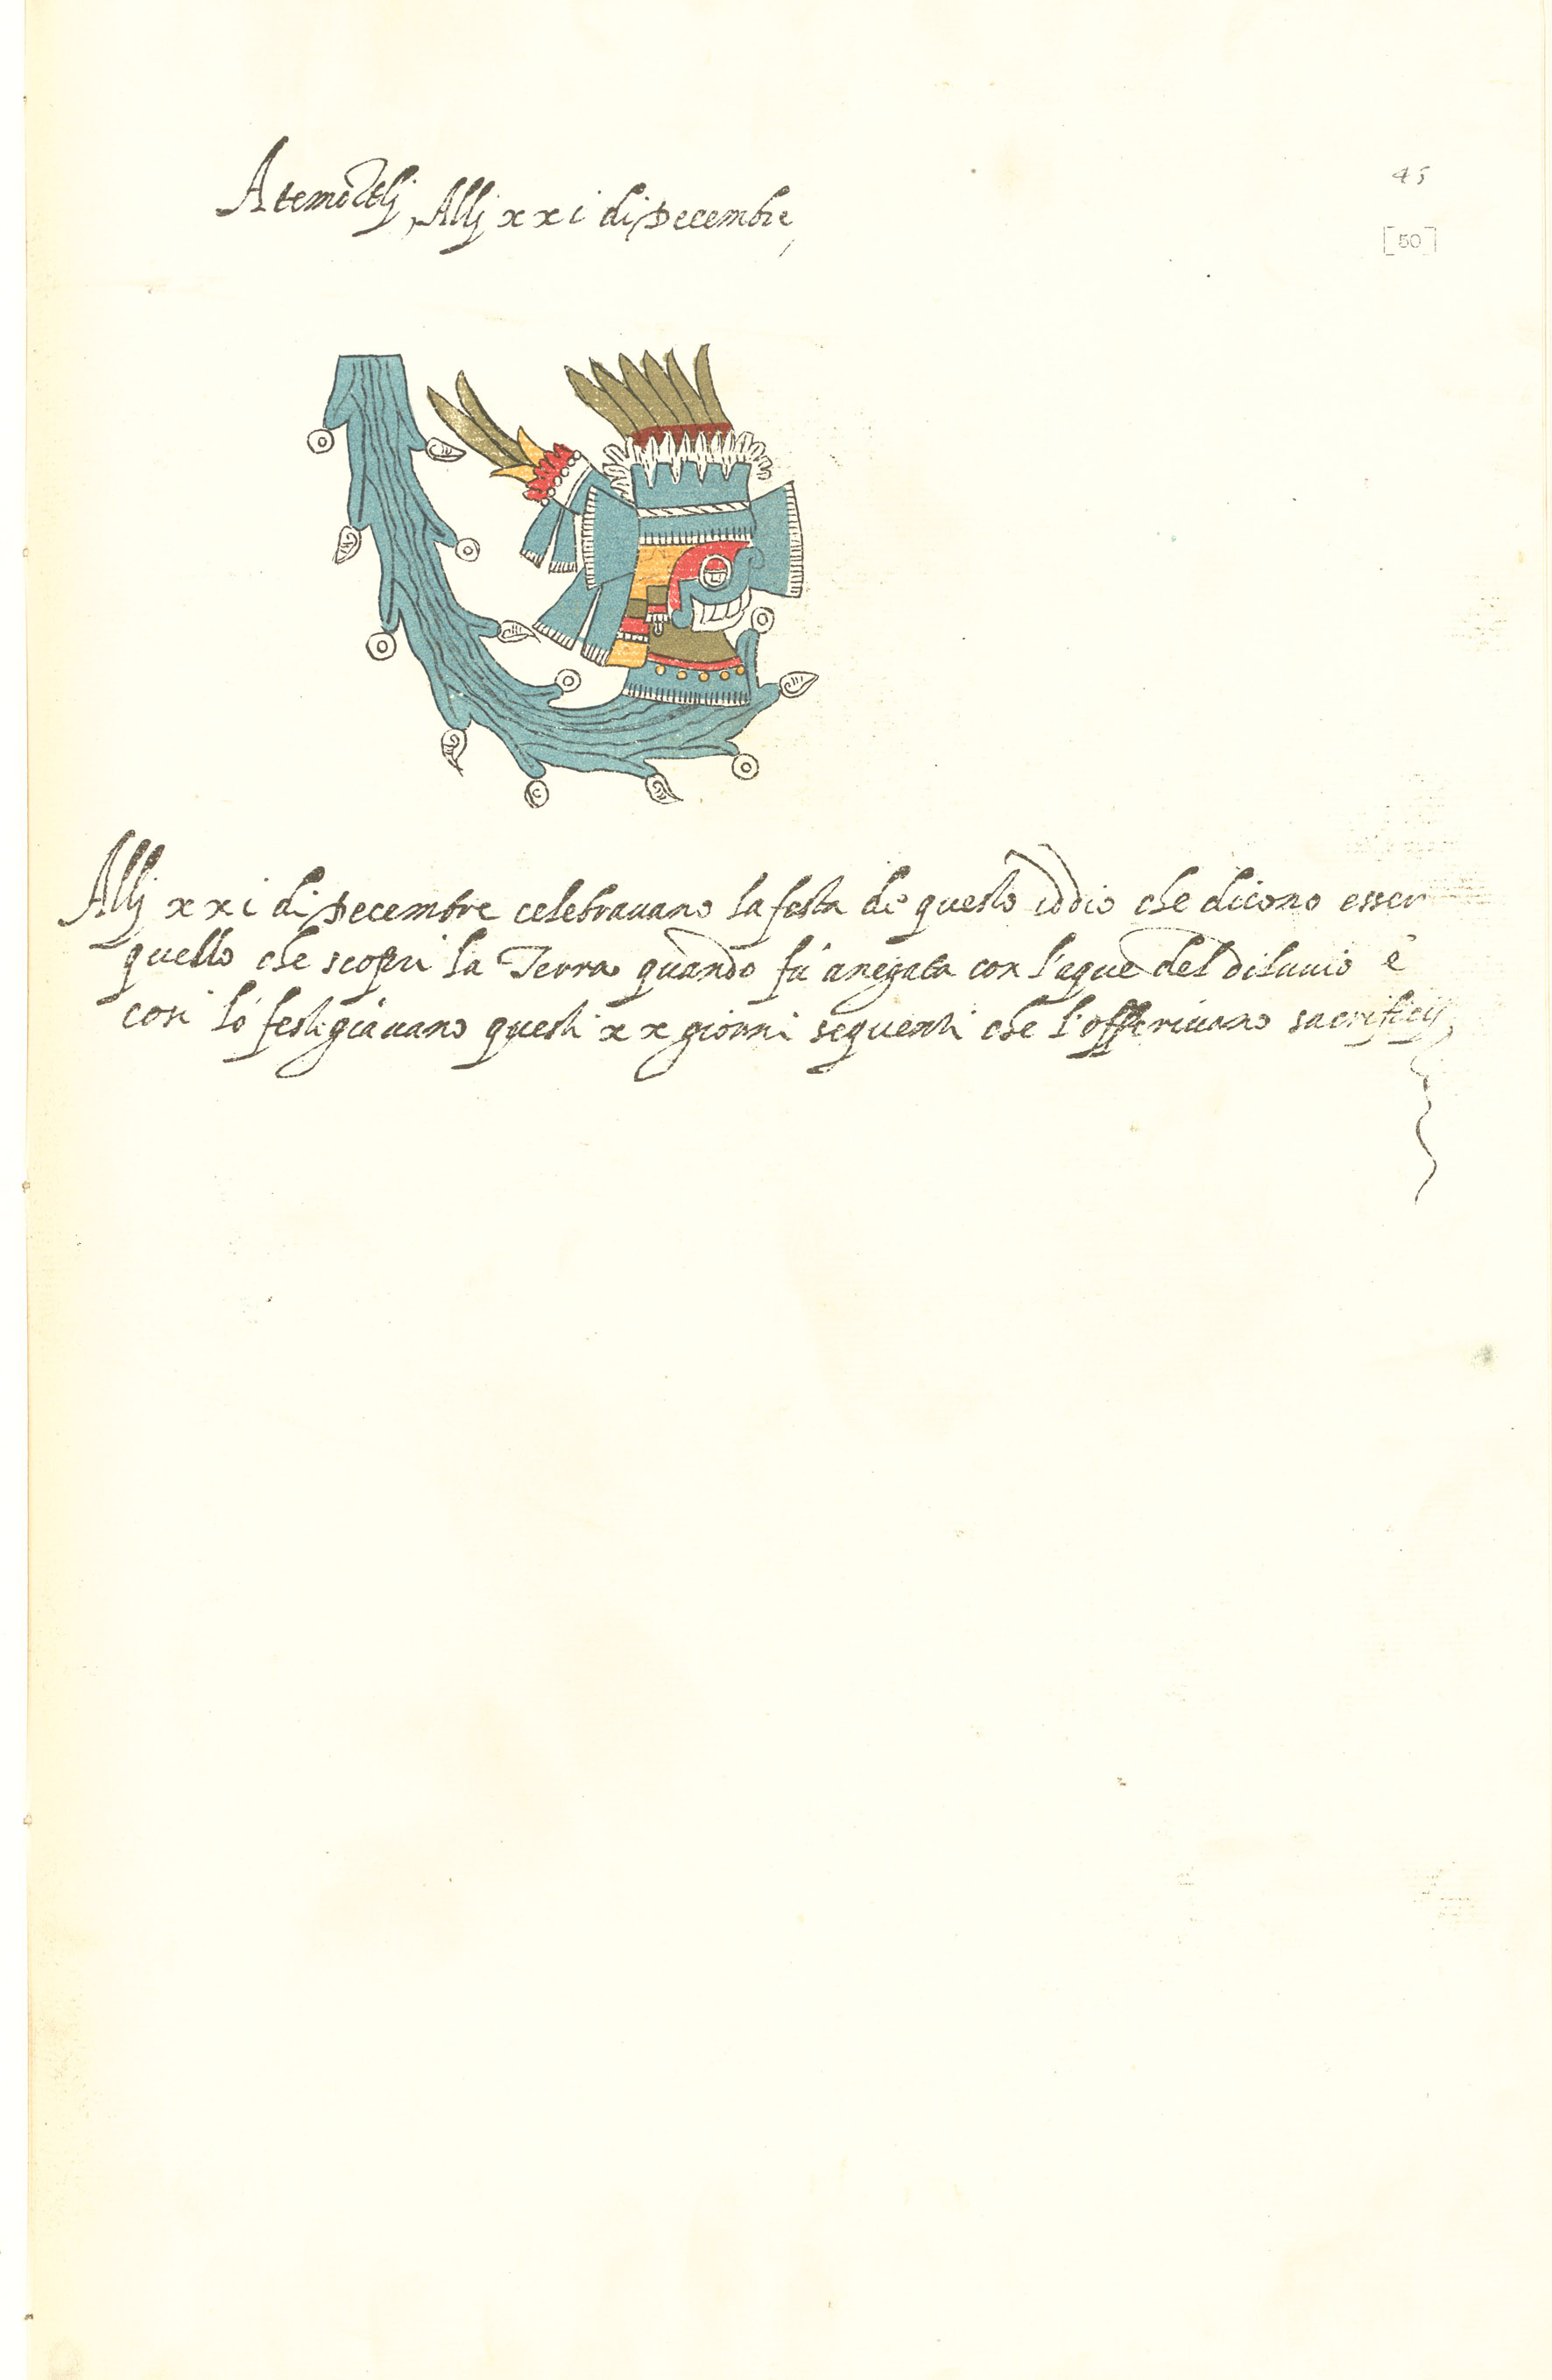 Atemoztli, Alli xxi di Decembre,
45
[50]
Alli xxi di Decembre celebrauano la festa di questo iddio che dicono esser
quello che scoprì la Terra quando fù anegata con l'aque del diluuio è
cosi lò festigiàuano questi xx giorni sequenti che l'offeriuano sacrificij,